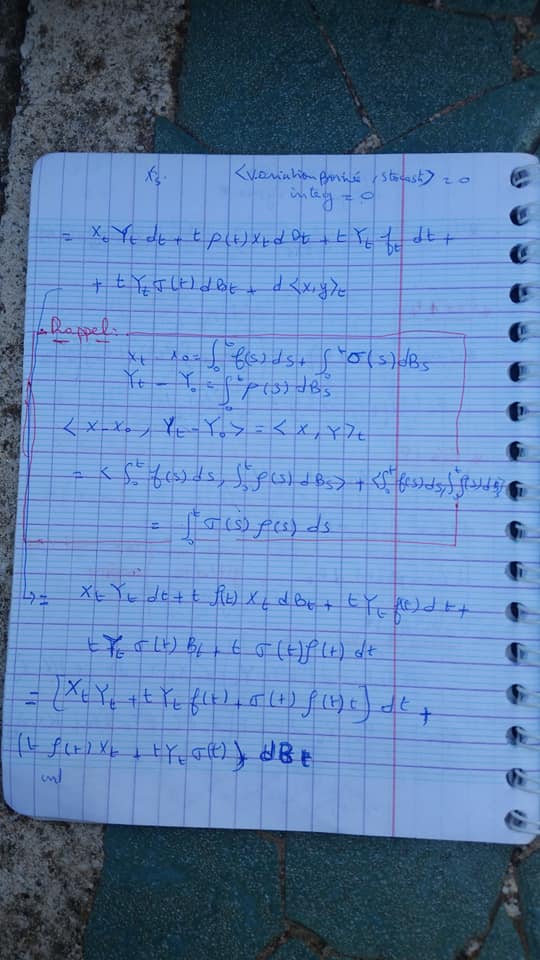 <Variation finie, stocast> = 0
integ = 0
= X_t Y_t dt + t ρ(t) X_t dB_t + t Y_t f_t dt +
+ t Y_t σ(t) dB_t + d<X,Y>_t
Rappel:
X_t - X_0 = ∫_0^t f(s) ds + ∫_0^t σ(s) dB_s
Y_t - Y_0 = ∫_0^t ρ(s) dB_s
< X - X_0, Y_t - Y_0 > = < X, Y >_t
= < ∫_0^t f(s) ds, ∫_0^t ρ(s) dB_s > + < ∫_0^t f(s) ds, ∫_0^t ρ(s) dB_s >
= ∫_0^t σ(s) ρ(s) ds
= X_t Y_t dt + t ρ(t) X_t dB_t + t Y_t f(t) dt +
t Y_t σ(t) B_t + t σ(t) ρ(t) dt
= [X_t Y_t + t Y_t f(t) + σ(t) ρ(t) t] dt +
(t ρ(t) X_t + t Y_t σ(t)) dB_t